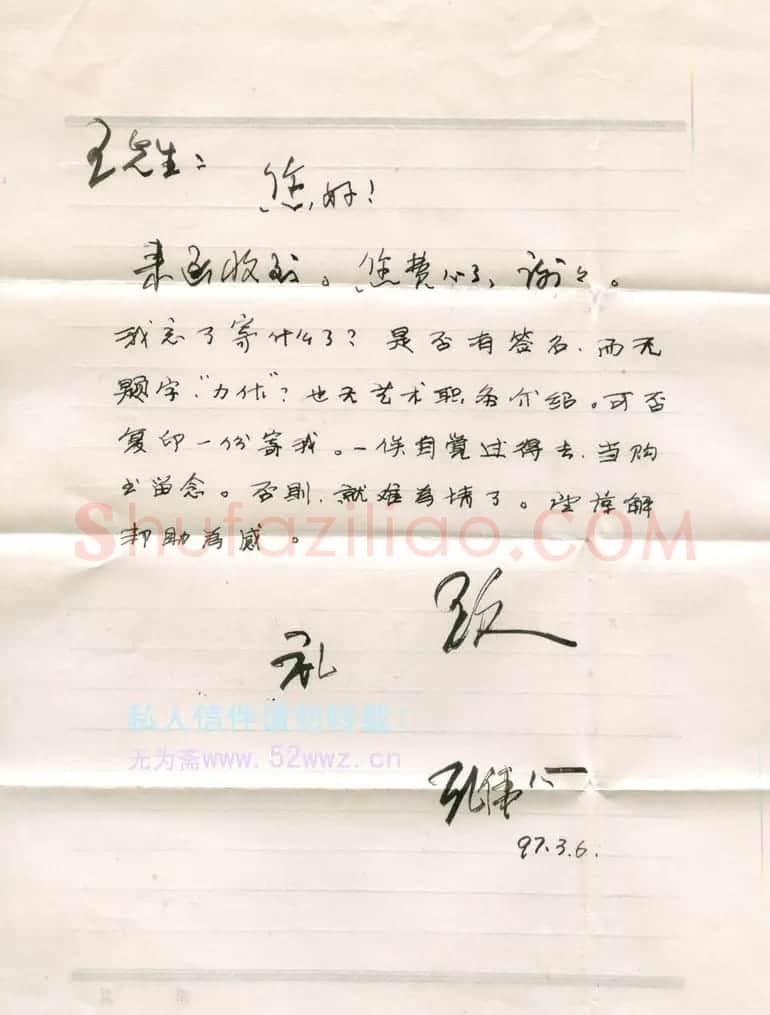 王先生：
您好！
来函收到。您费心了，谢々。
我忘了寄什么了？是否有签名，而无
题字“力作”？也无艺术职务介绍。可否
复印一份寄我。一俟自觉过得去，当购
书留念。否则，就难为情了。望谅解
帮助为感。
致
礼
私人信件请勿转载！
无为斋www.52wwz.cn
Shufaziliao.COM
孔
97.3.6.